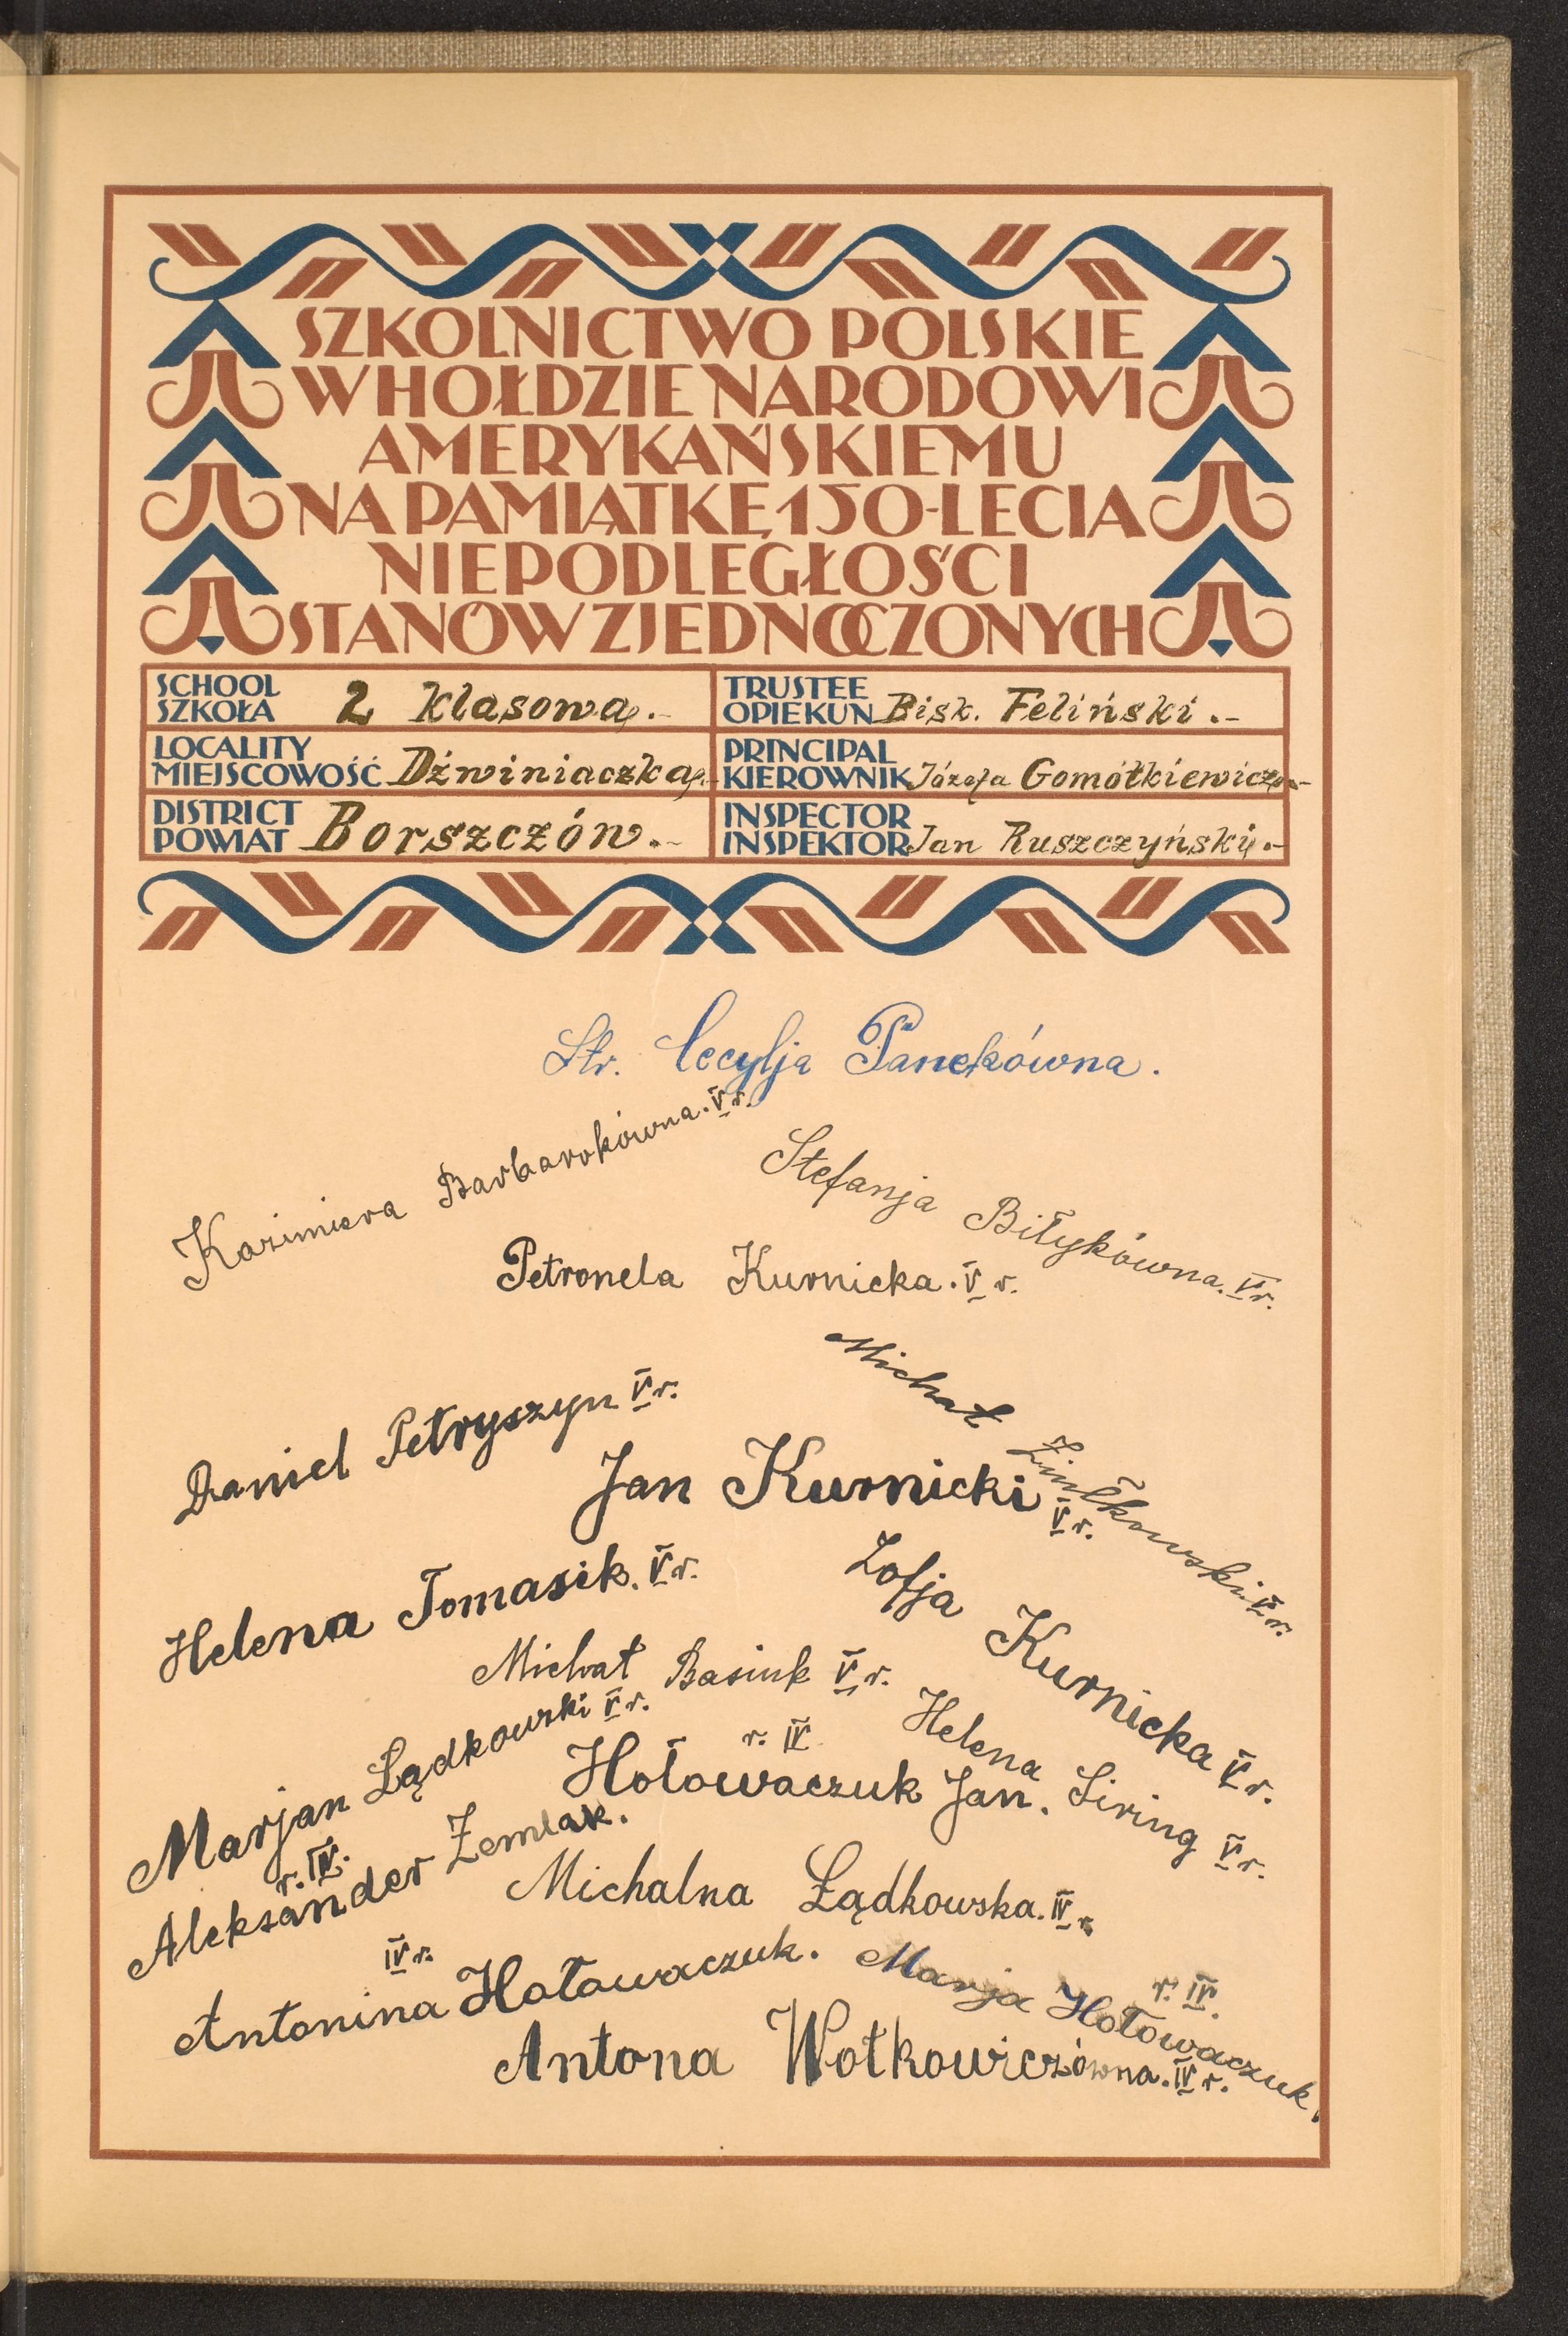 SZKOLNICTWO POLSKIE
W HOŁDZIE NARODOWI
AMERYKAŃSKIEMU
NA PAMIĄTKĘ 150-LECIA
NIEPODLEGŁOŚCI
STANÓW ZJEDNOCZONYCH
SCHOOL
SZKOŁA 2 klasowa.-
TRUSTEE
OPIEKUN Bisk. Feliński.-
LOCALITY
MIEJSCOWOŚĆ Dźwiniaczka.-
PRINCIPAL
KIEROWNIK Józefa Gomółkiewicz.-
DISTRICT
POWIAT Borszczów.-
INSPECTOR
INSPEKTOR Jan Ruszczyński.-
Str. Cecylja Panekówna.
Kazimiera Barbarokówna. V r.
Stefanja Biłykówna. V r.
Petronela Kurnicka. V r.
Michał Ziułkowski V r.
Daniel Petryszyn V r.
Jan Kurnicki V r.
Helena Tomasik. V r.
Zofja Kurnicka V r.
Michał Basiuk V r.
Marjan Lądkowski V r.
Helena Siring V r.
Hołowaczuk Jan. r. IV
Aleksander Zemlak. r. IV.
Michalna Łądkowska. IV r.
Antonina Hołowaczuk. IV r.
Marja Hołowaczuk. r. IV.
Antona Wołkowiczówna. IV r.